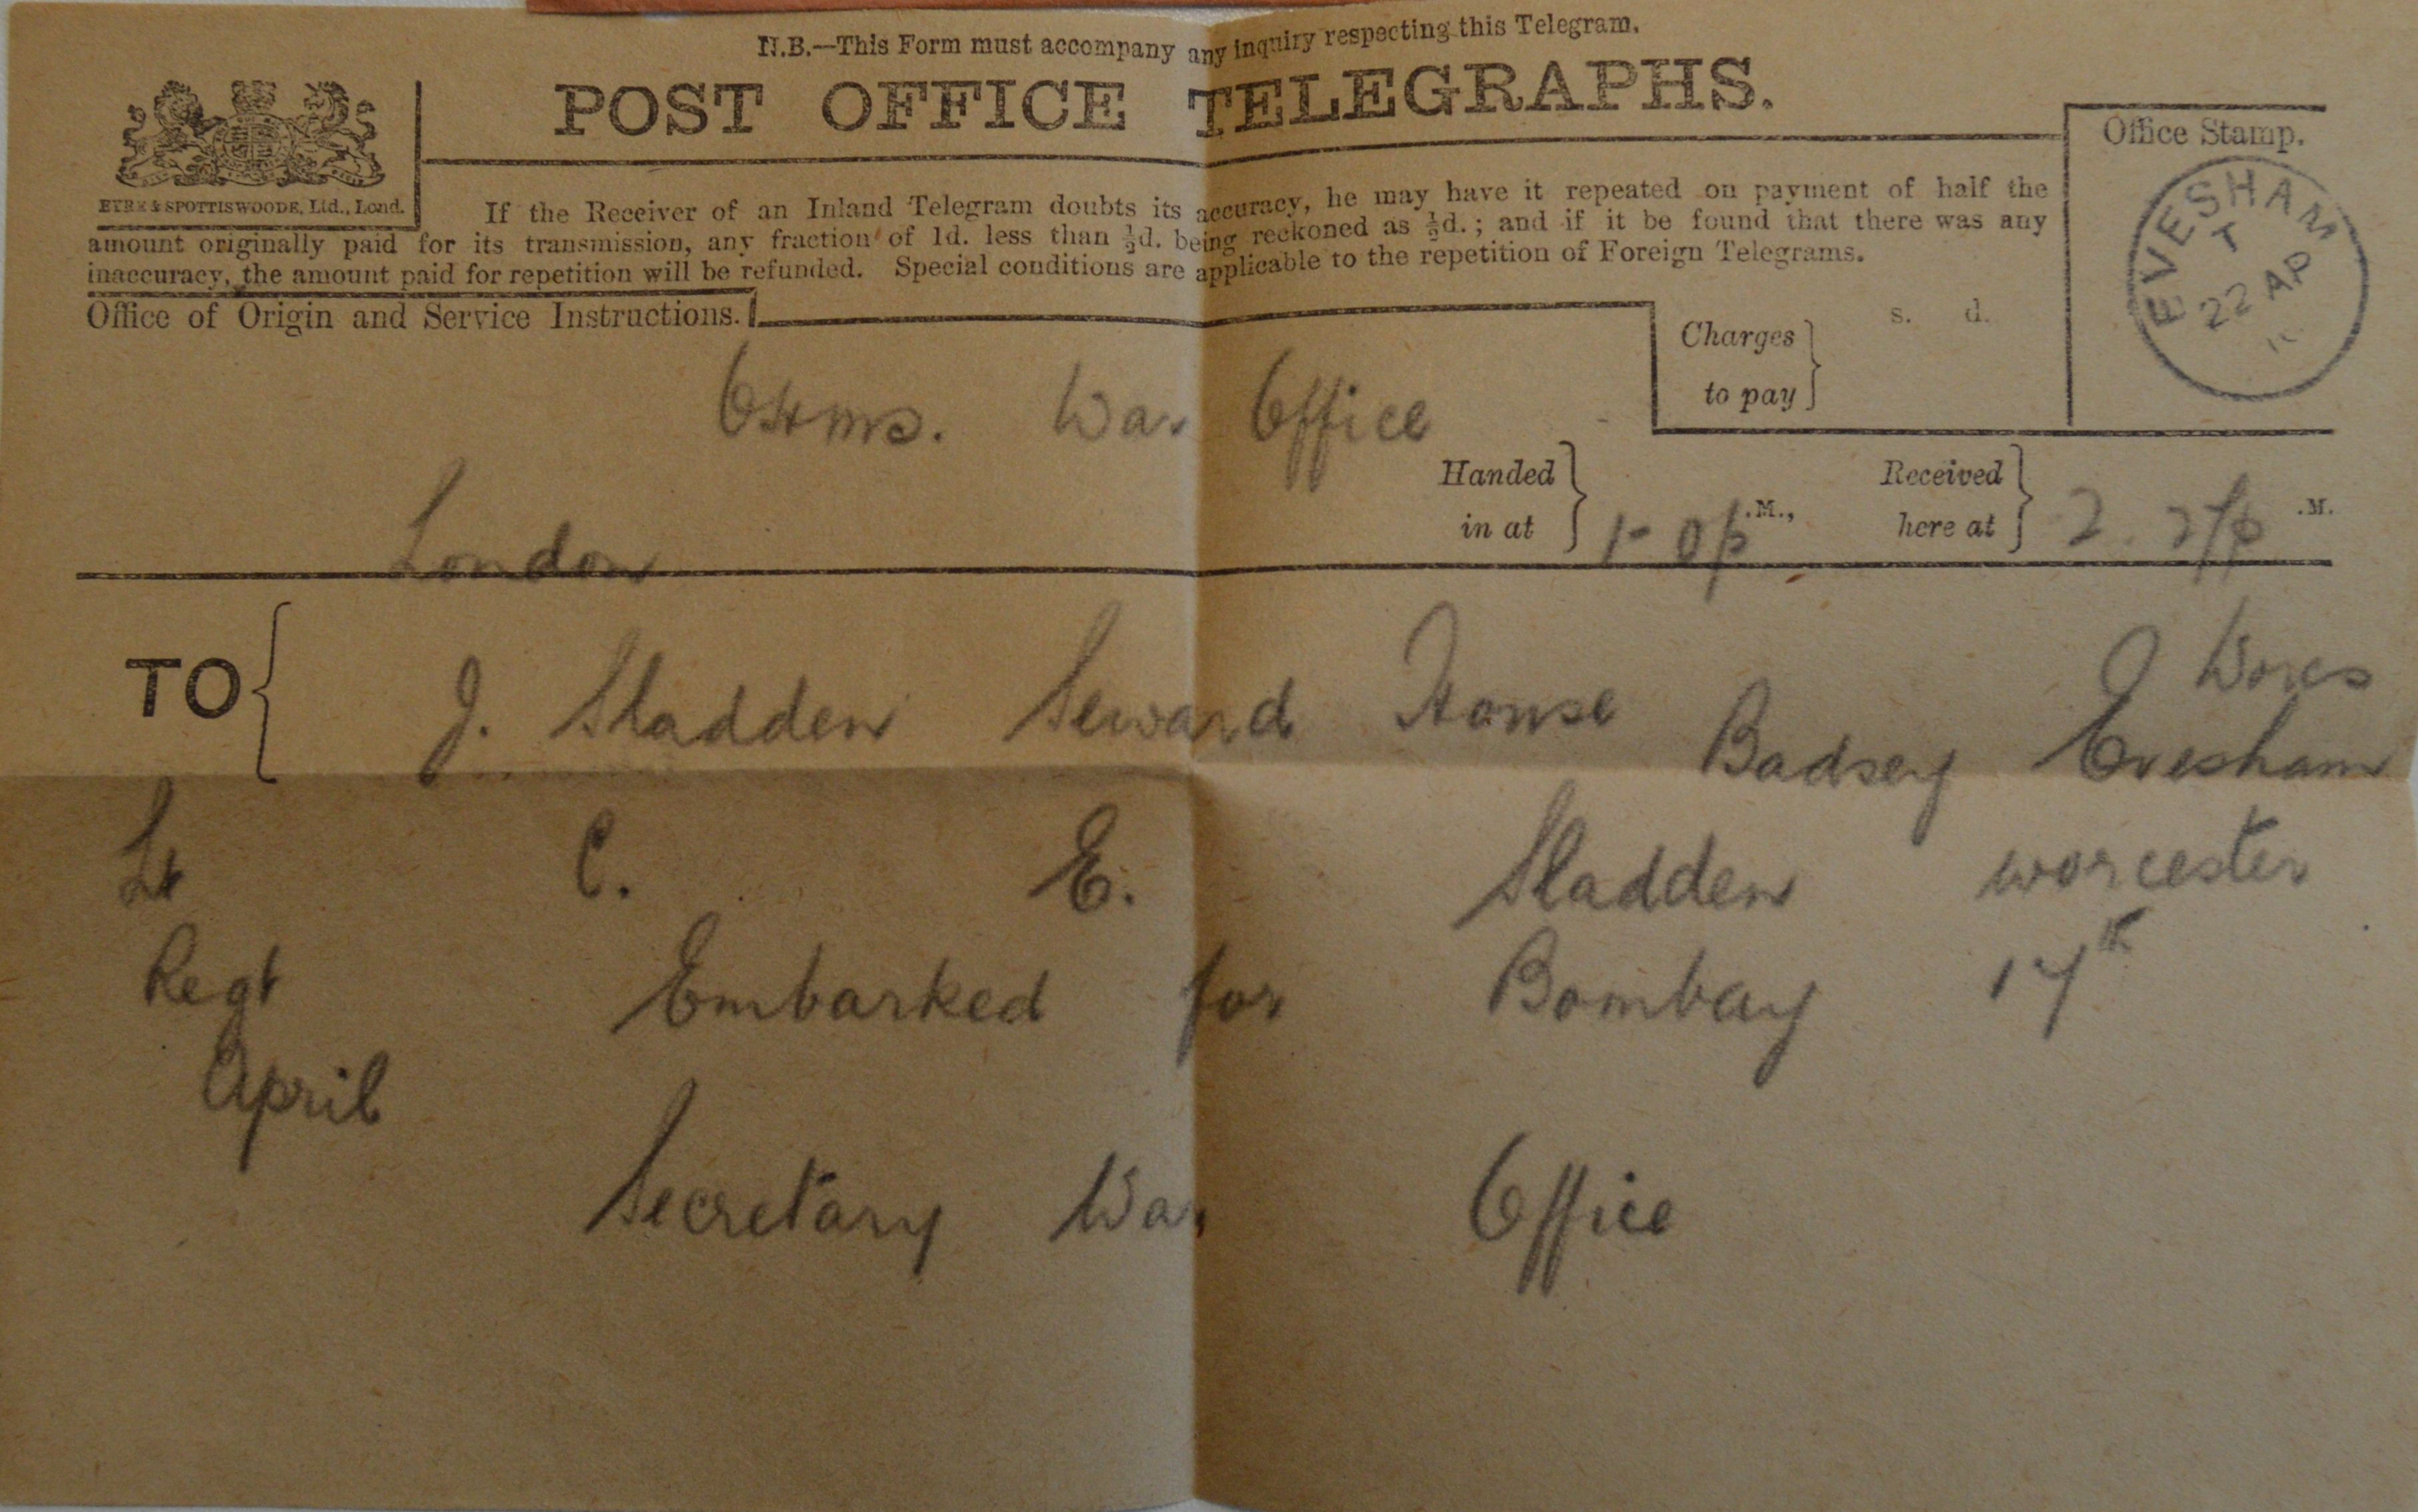 N.B.—This Form must accompany any inquiry respecting this Telegram.
POST OFFICE TELEGRAPHS.
EYRE & SPOTTISWOODE, Ltd., Lond.
If the Receiver of an Inland Telegram doubts its accuracy, he may have it repeated on payment of half the
amount originally paid for its transmission, any fraction of 1d. less than ½d. being reckoned as ½d.; and if it be found that there was any
inaccuracy, the amount paid for repetition will be refunded. Special conditions are applicable to the repetition of Foreign Telegrams.
Office Stamp.
EVESHAM
T
22 AP
Office of Origin and Service Instructions.
Charges
to pay
s. d.
OHMS. War Office
London
Handed
in at
1-0p .M.,
Received
here at
2. .M.
TO
J. Sladden Seward House Badsey Evesham
Worcs
Lt C. E. Sladden worcester
Regt Embarked for Bombay 17th
April
Secretary War Office